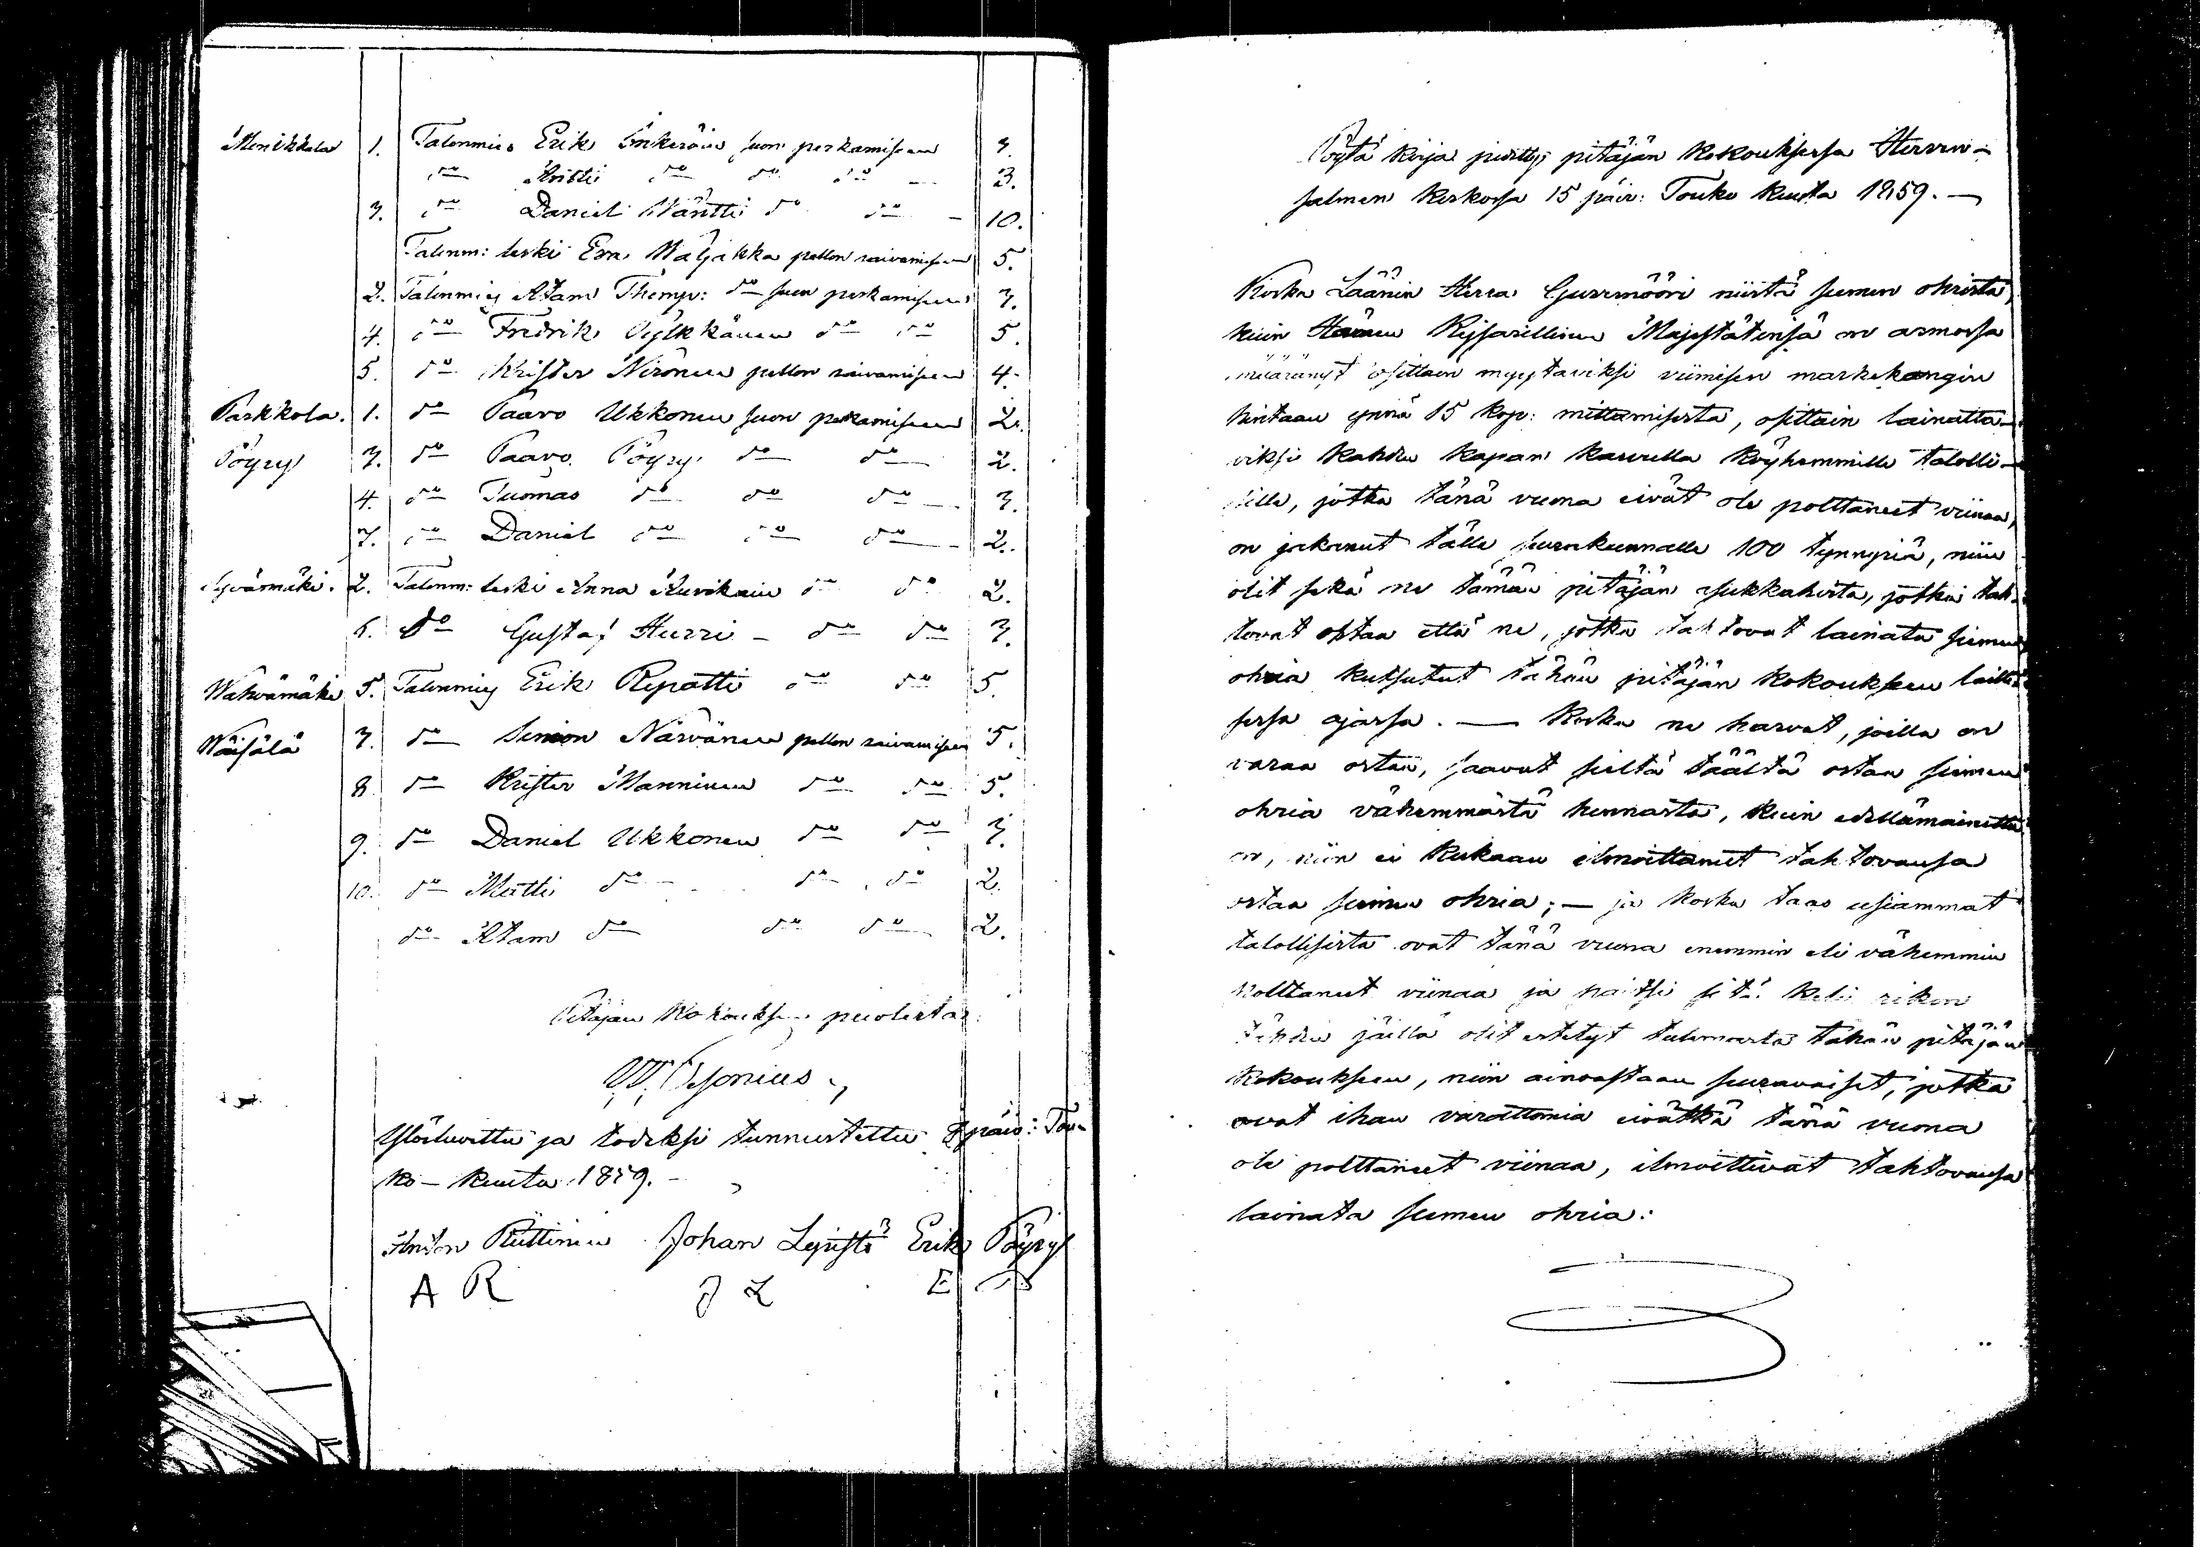 1. Talonmies Erik suon perkamiseen 3.
do do do do 3.
3. do Daniel Wäntti do do 10.
Talonm: leski Eva Waljakka pellon raivamiseen 5.
2. Talonmies Adam Thomp: do suon perkamiseen 3.
4. do Fredrik Pylkkänen do do 5.
5. do Krister Nirönen pellon raivamiseen 4.
Parkkola. 1. do Paavo Ukkonen suon perkamiseen 2.
Pöyry 3. do Paavo Pöyry do do 2.
4. do Tuomas do do do 3.
7. do Daniel do do do 2.
Syvänmäki. 2. Talonm: leski Anna Kuvikain do do 2.
6. do Gustaf Hurri do do 3.
Wahvamäki 5. Talonmies Erik Repatti do do 5.
Wäisälä 7. do Simon Närvänen pellon raivamiseen 5.
8. do Krister Manninen do do 5.
9. do Daniel Ukkonen do do 3.
10. do Matti do do do 2.
do Adam do do do 2.
Pitäjän Kokouksen puolesta:
Ylösluettu ja todeksi tunnustettu päiv: Tou-
ko-kuuta 1859.
Anton Riittinen Johan Lyijstö Erik Pöyry
A R J L E P
Pöytä kirja pidetty pitäjän kokouksessa Hirven-
salmen kirkossa 15 päiv: Touko kuuta 1859. —
Koska Läänin Herra Guvernööri niistä siemen ohrista,
kuin Hänen Keisarillinen Majestätensä on armossa
määrännyt osittain myytäviksi viimisen markekangin
hintaan ynnä 15 kop: mittamisesta, osittain lainatta-
viksi kahden kapan kasvulla köyhemmille talolli-
sille, jotka tänä vuona eivät ole polttaneet viinaa,
on jakanut tälle seurakunnalle 100 tynnyriä, niin
olit sekä ne tämän pitäjän asukkahista, jotka tah-
tovat ostaa että ne, jotka tahtovat lainata siemen
ohria kutsutut tähän pitäjän kokoukseen lailli-
sessa ajassa. — Koska ne harvat, joilla on
varaa ostaa, saavat sieltä täältä ostaa siemen
ohria vähemmästä hinnasta, kuin edellämainittu
on, niin ei kukaan ilmoittanut tahtovansa
ostaa siemen ohria; — ja koska taas usiammat
talollisista ovat tänä vuona enemmin eli vähemmin
polttaneet viinaa ja paitsi sitä keli rikon
tähden jäillä olit estetyt tulemasta tähän pitäjän
kokoukseen, niin ainoastaan seuravaiset, jotka
ovat ihan varattomia eivätkä tänä vuona
ole polttaneet viinaa, ilmoittivat tahtovansa
lainata siemen ohria: